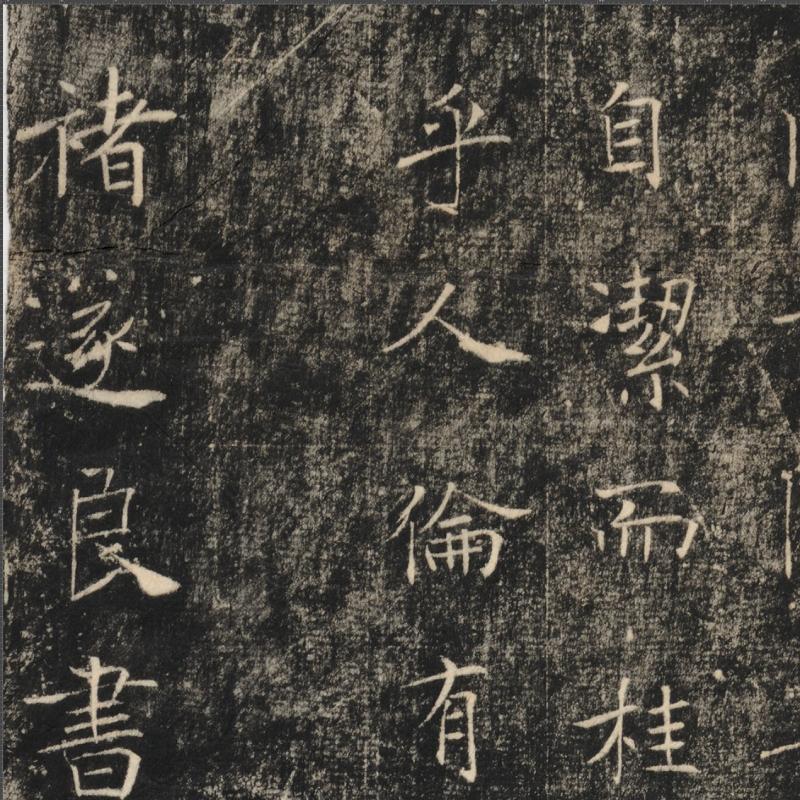 自潔而桂
乎人倫有
褚遂良書